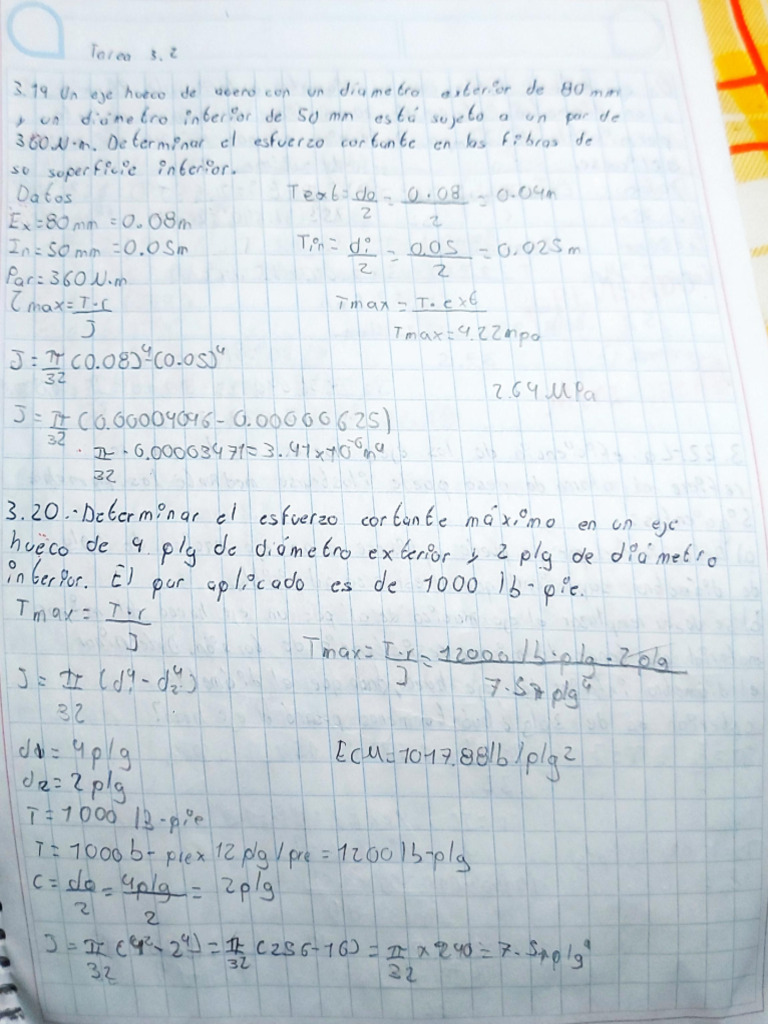 Tarea 3.2
3.19 Un eje hueco de acero con un diametro exterior de 80 mm
y un diámetro interior de 50 mm está sujeto a un par de
360 N·m. Determinar el esfuerzo cortante en las fibras de
su superficie interior.
Datos
Ex=80mm=0.08m
In=50mm=0.05m
Par=360N.m
Text=do/2=0.08/2=0.04m
Tin=di/2=0.05/2=0.025m
Tmax=T·r/J
Tmax=T·ex6
Tmax=4.22mpa
J=π/32(0.08)⁴-(0.05)⁴
2.64 MPa
J=π/32(0.00004096-0.00000625)
·π/32·0.00003471=3.41x10⁻⁶m⁴
3.20.-Determinar el esfuerzo cortante máximo en un eje
hueco de 4 plg de diámetro exterior y 2 plg de diámetro
interior. El par aplicado es de 1000 lb-pie.
Tmax=T·r/J
Tmax=T·r/J=12000 lb·plg·2plg/7.5π plg⁴
J=π/32(d₁⁴-d₂⁴)
d1=4plg
ECM=1017.88lb/plg²
d2=2plg
T=1000 lb-pie
T=1000b-piex12plg/pre=1200lb-plg
C=do/2=4plg/2=2plg
J=π/32(4²-2⁴)=π/32(256-16)=π/32x240=7.5πplg⁴